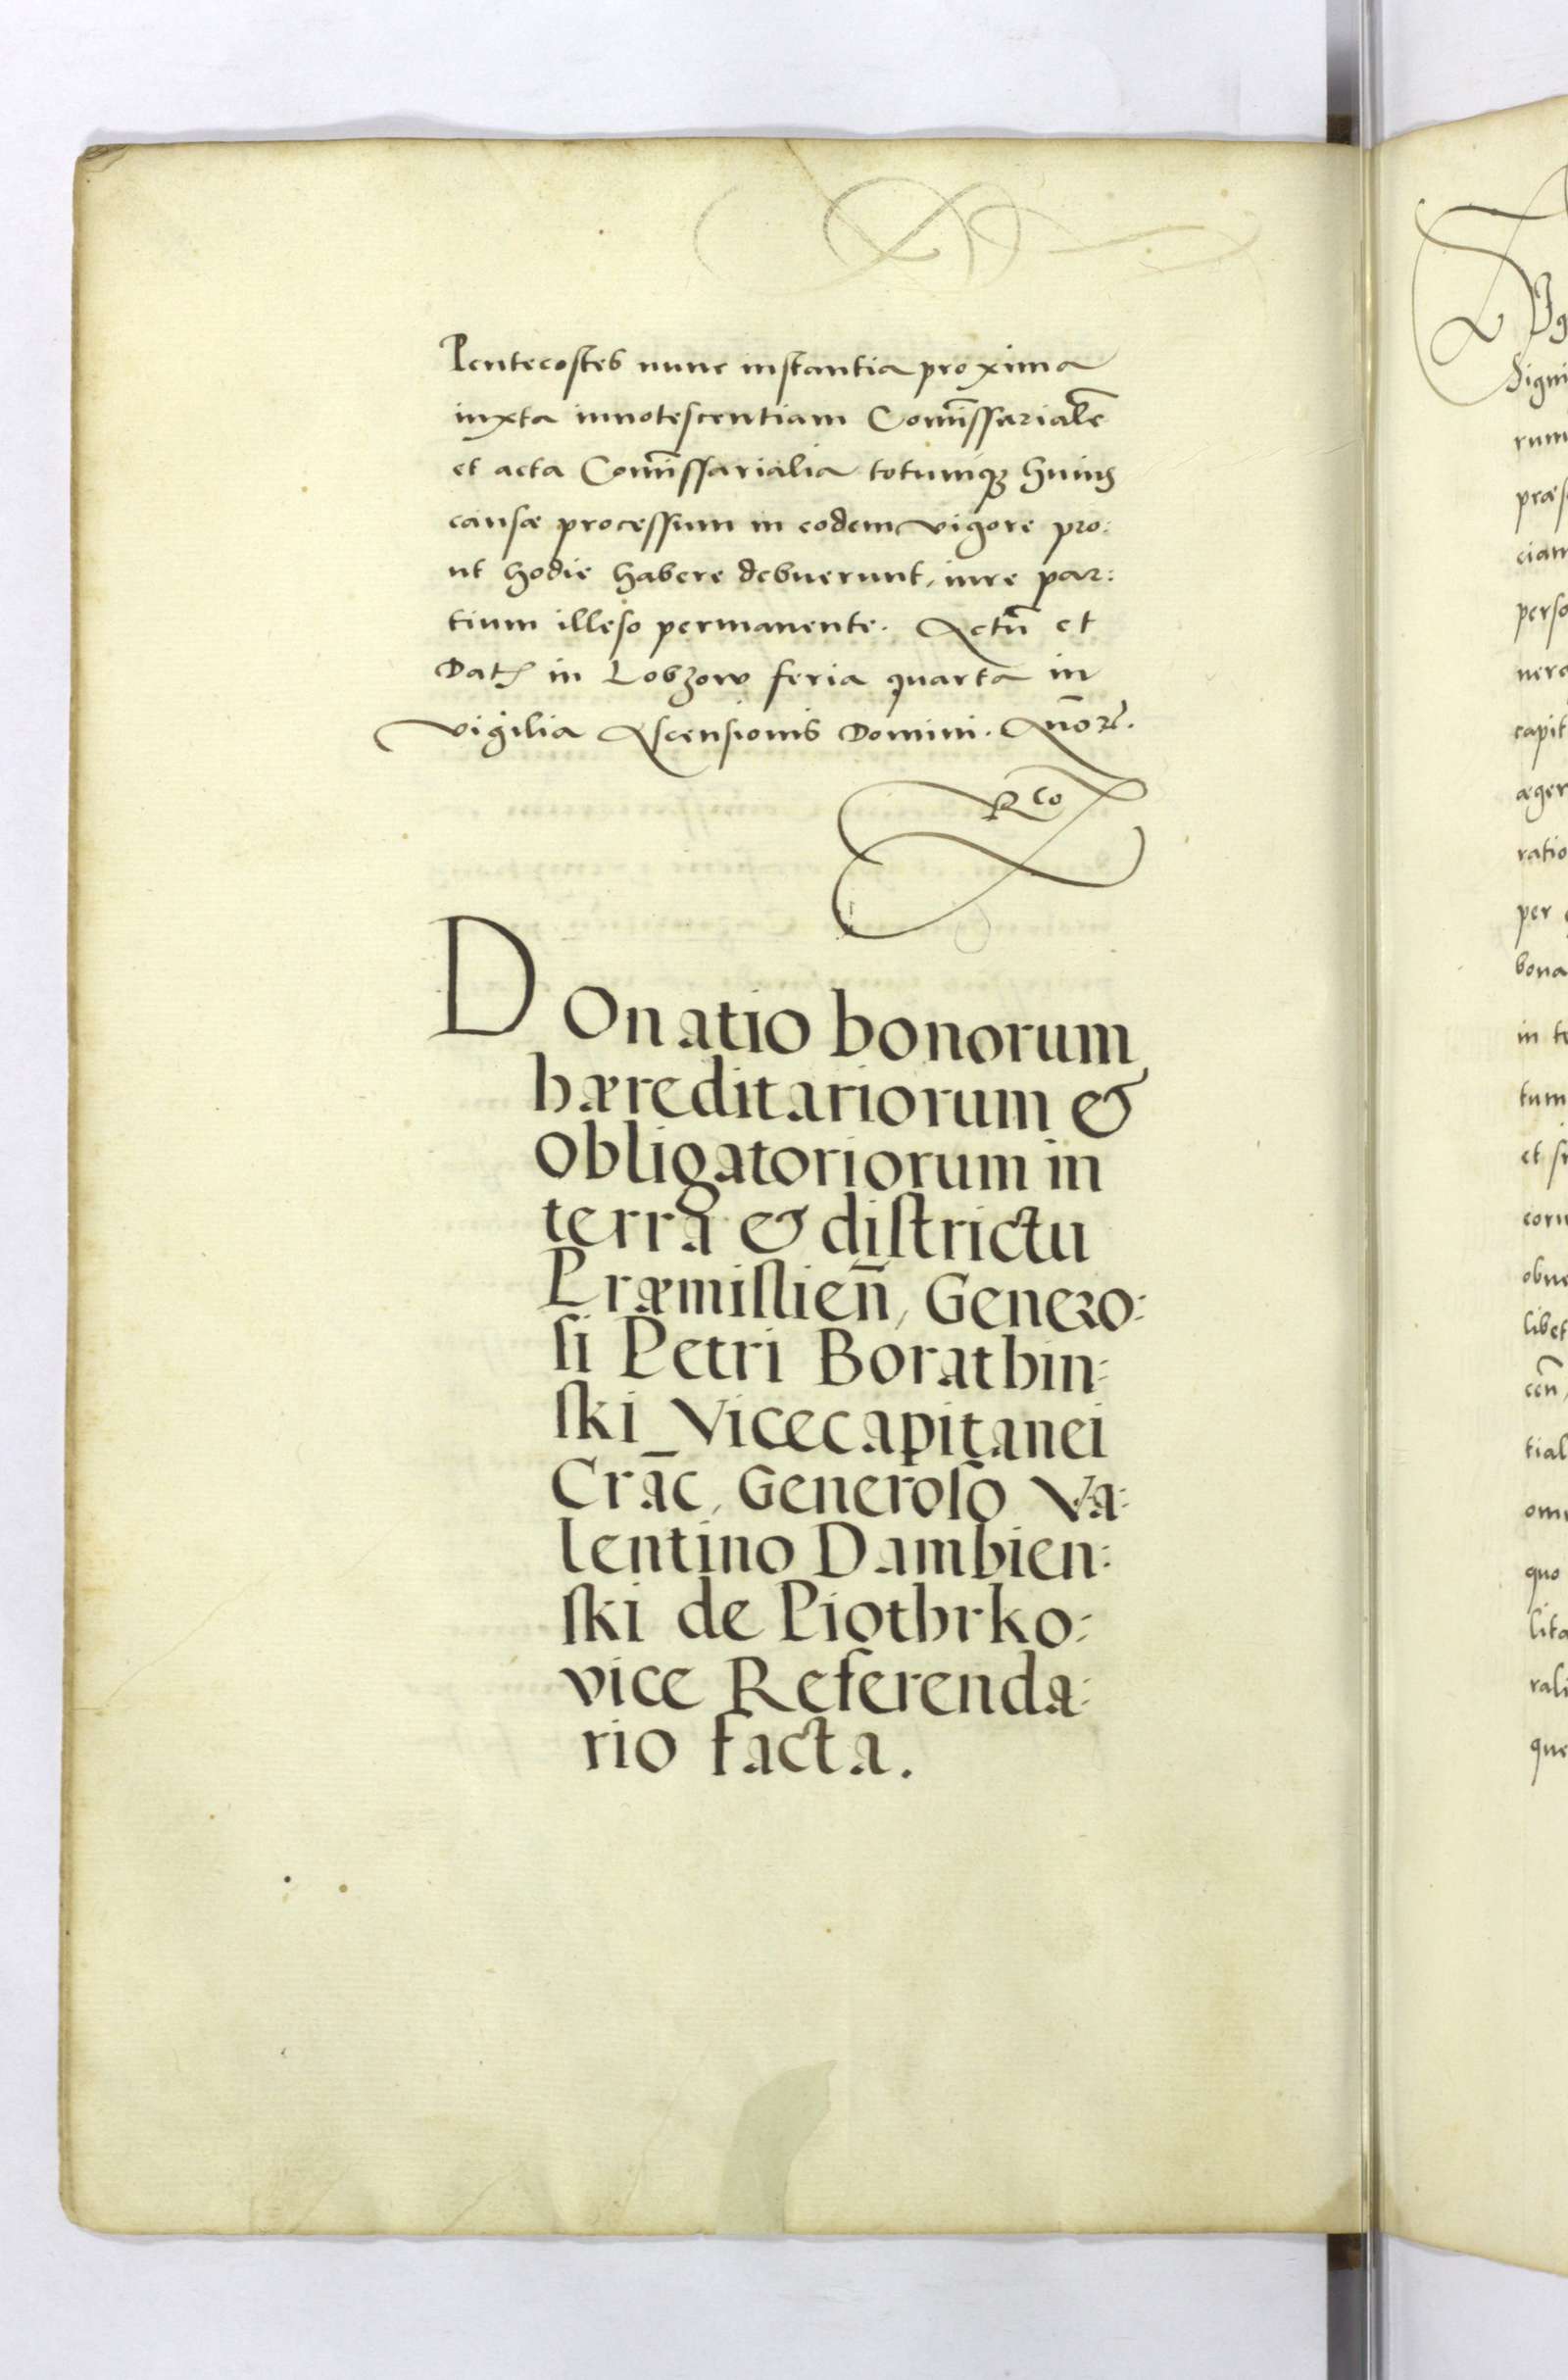 Pentecostes nunc instantia proxima
iuxta innotescentiam Com̃issarialẽ
et acta Com̃issarialia totumqꜟ huius
causæ processum in eodem vigore pro:
ut hodie habere debuerunt, iure par:
tium illeso permanente. Actũ et
Dat in Lobzow feria quarta in
vigilia Ascensionis Domini. Año
Rto
DOnatio bonorum
hæreditariorum &
obligatoriorum in
terra & districtu
Præmislien̄, Genero:
si Petri Borathin:
ski Vicecapitanei
Crac̄, Generoso Va:
lentino Dambien:
ski de Piothrko:
vice Referenda:
rio facta.
digni
rum
præs
ciam
perso
nero
capit
æger
ratio
per
bona
in te
tum
et si
coru
obue
libet
ceñ,
tial
omn
quo
lita
rali
que